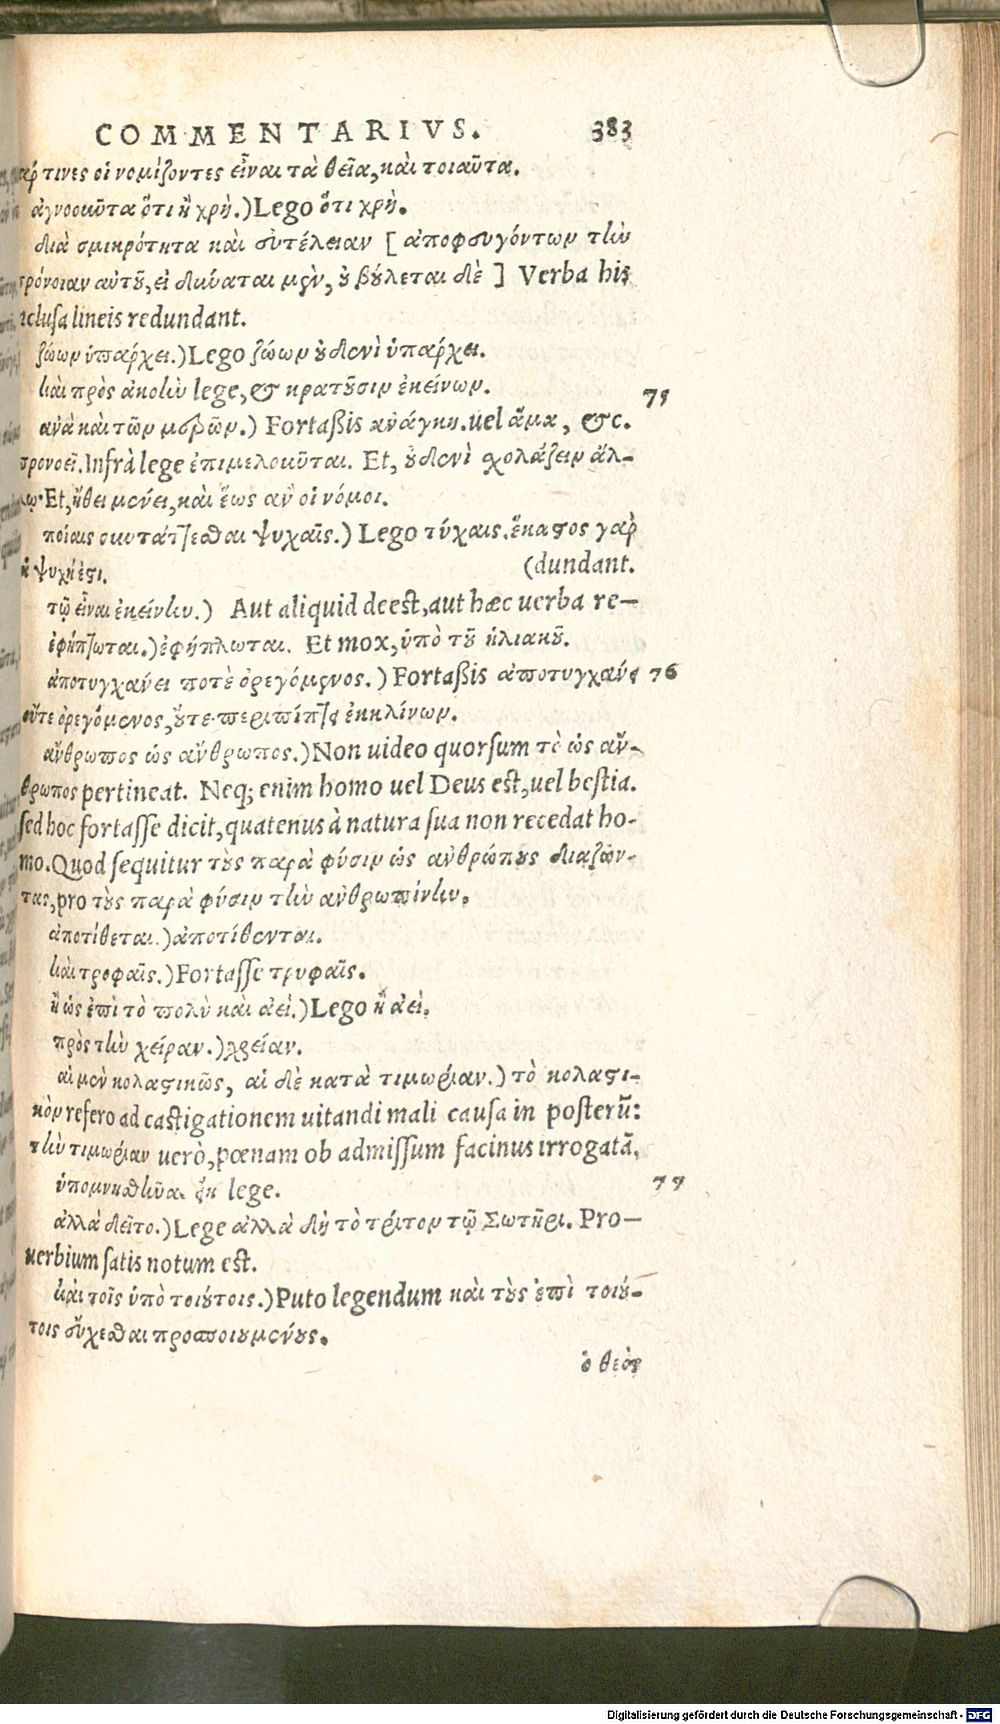 COMMENTARIVS. 383
τινες οἱ νομίζοντες εἶναι τὰ θεῖα, καὶ τοιαῦτα.
ἀγνοοῦντα ὅτι ἢ χρὴ.) Lego ὅτι χρὴ.
διὰ σμικρότητα καὶ εὐτέλειαν [ἀποφευγόντων τὴν
πρόνοιαν αὐτοῦ, εἰ δύναται μὲν, οὐ βούλεται δὲ] Verba his
inclusa lineis redundant.
ζώων ὑπάρχει.) Lego ζώων οὐδενὶ ὑπάρχει.
καὶ πρὸς ἀκοὴν lege, & κρατοῦσιν ἐκείνων. 75
ἀνὰ καὶ τῶν μερῶν.) Fortaßis ἀνάγκη. uel ἅμα, &c.
προνοεῖ. Infrà lege ἐπιμελοῦνται. Et, οὐδενὶ σχολάζειν ἄλ-
λῳ. Et, ἤθει μένει, καὶ ἕως ἂν οἱ νόμοι.
ποίαις συντάττεσθαι ψυχαῖς.) Lego τύχαις. ἕκαστος γὰρ
ἡ ψυχή ἐστι. (dundant.
τῷ εἶναι ἐκείνην.) Aut aliquid deest, aut hæc uerba re-
ἐφήπτωται.) ἐφήπλωται. Et mox, ὑπὸ τοῦ ἡλιακοῦ.
ἀποτυγχάνει ποτὲ ὀρεγόμενος.) Fortaßis ἀποτυγχάνει 76
οὔτε ὀρεγόμενος, οὔτε περιπίπτει ἐκκλίνων.
ἄνθρωπος ὡς ἄνθρωπος.) Non uideo quorsum τὸ ὡς ἄν-
θρωπος pertineat. Neq; enim homo uel Deus est, uel bestia.
sed hoc fortasse dicit, quatenus à natura sua non recedat ho-
mo. Quod sequitur τοὺς παρὰ φύσιν ὡς ἀνθρώπους διαζῶν-
τας, pro τοὺς παρὰ φύσιν τὴν ἀνθρωπίνην.
ἀποτίθεται.) ἀποτίθενται.
καὶ τροφαῖς.) Fortasse τρυφαῖς.
ἢ ὡς ἐπὶ τὸ πολὺ καὶ ἀεί.) Lego ἢ ἀεὶ.
πρὸς τὴν χείραν.) χρείαν.
αἱ μὲν κολαστικῶς, αἱ δὲ κατὰ τιμωρίαν.) τὸ κολαστι-
κὸν refero ad castigationem uitandi mali causa in posterū:
τὴν τιμωρίαν uerò, pœnam ob admissum facinus irrogatā.
ὑπομνησθῆναι ἐκ lege. 77
ἀλλὰ δεῖτο.) Lege ἀλλὰ δὴ τὸ τρίτον τῷ Σωτῆρι. Pro-
uerbium satis notum est.
καὶ τοῖς ὑπὸ τούτοις.) Puto legendum καὶ τοὺς ἐπὶ τού-
τοις εὔχεσθαι προσποιουμένους.
ὁ θεὸς
Digitalisierung gefördert durch die Deutsche Forschungsgemeinschaft - DFG